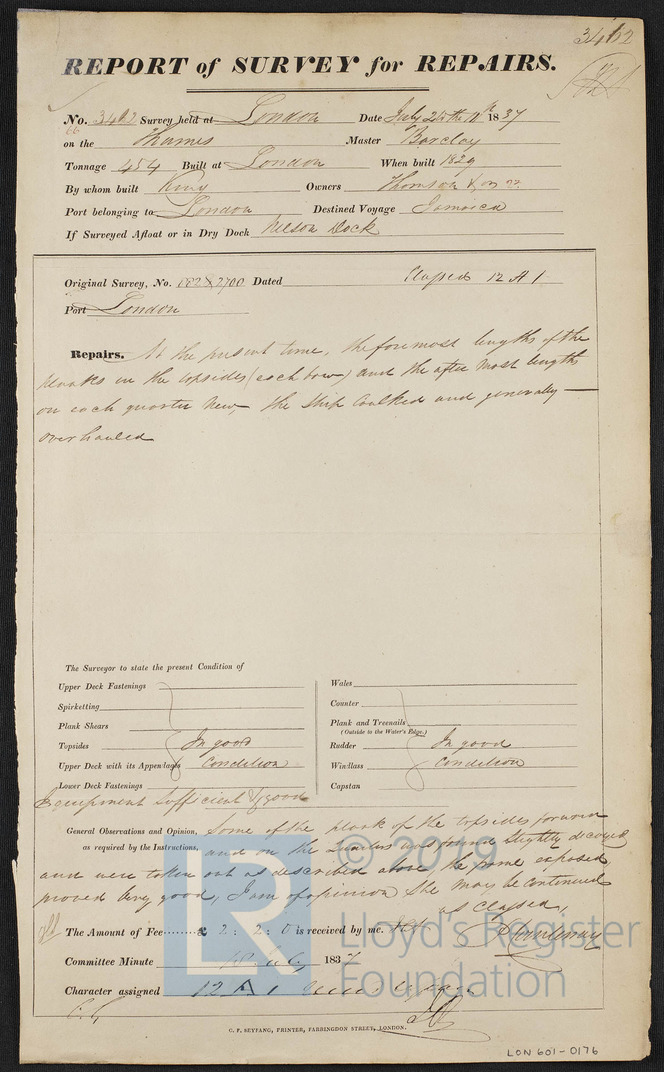 3462
REPORT of SURVEY for REPAIRS.
No. 3462 Survey held at London Date July 24th 1837
66
on the Thames Master Barclay
Tonnage 454 Built at London When built 1829
By whom built King Owners Thomson &
Port belonging to London Destined Voyage Jamaica
If Surveyed Afloat or in Dry Dock Nelson Dock
Original Survey, No. 2700 Dated Classed 12 A 1
Port London
Repairs. At the present time, the foremost lengths of the
planks in the topsides (each bow) and the after most lengths
on each quarter New, the ship Caulked and generally
overhauled
The Surveyor to state the present Condition of
Upper Deck Fastenings
Spirketting
Plank Shears
Topsides In good
Upper Deck with its Appendages Condition
Lower Deck Fastenings
Wales
Counter
Plank and Treenails
(Outside to the Water's Edge.)
Rudder In good
Windlass Condition
Capstan
Equipment Sufficient & good
General Observations and Opinion, Some of the plank of the topsides forward
as required by the Instructions, and on the Quarters was found slightly decayed
and were taken out as described above, the frame exposed
proved very good, I am of opinion She may be continued
as Classed,
The Amount of Fee £ 2 : 2 : 0 is received by me. Courtenay
Committee Minute July 1837
Character assigned 12 A 1
C. F. SEYFANG, PRINTER, FARRINGDON STREET, LONDON.
LON 601-0176
LR
© 2019
Lloyd's Register
Foundation